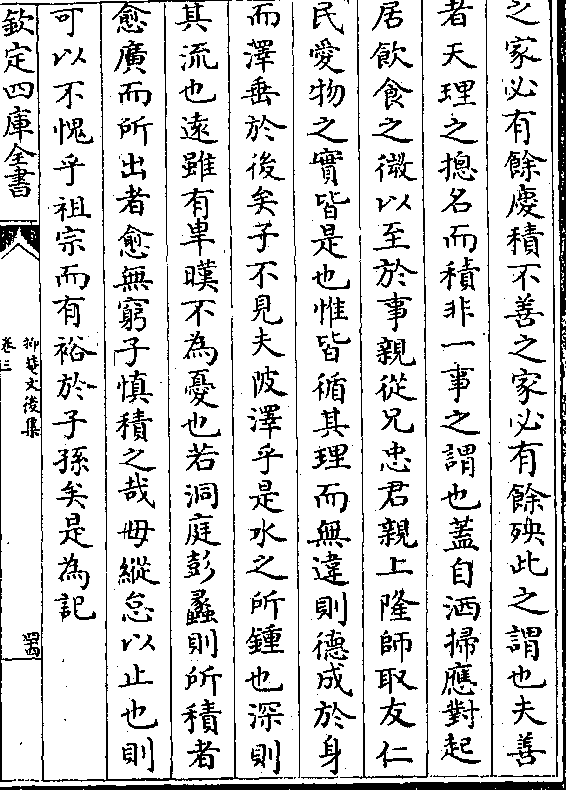 之家必有餘慶積不善之家必有餘殃此之謂也夫善
者天理之揔名而積非一事之謂也蓋自洒掃應對起
居飲食之微以至於事親從兄忠君親上隆師取友仁
民愛物之實皆是也惟皆循其理而無違則德成於身
而澤垂於後矣子不見夫陂澤乎是水之所鍾也深則
其流也遠雖有旱暵不為憂也若洞庭彭蠡則所積者
愈廣而所出者愈無窮子慎積之哉毋縱怠以止也則
可以不愧乎祖宗而有裕於子孫矣是為記
欽定四庫全書
抑菴文後集
卷三